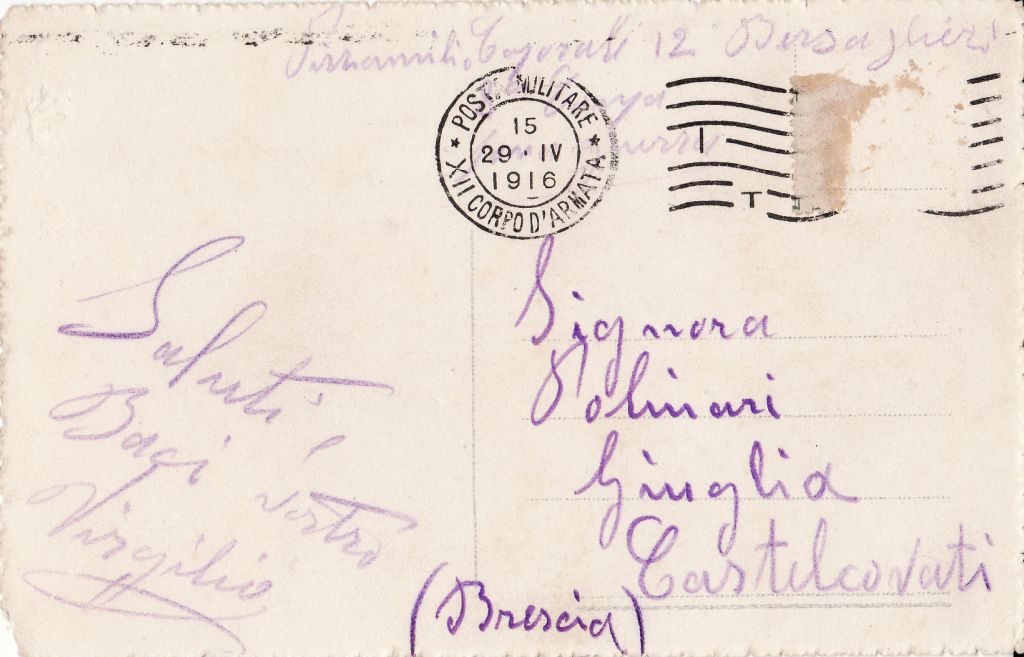 12 Bersaglieri
POSTA MILITARE
15
29·IV
1916
XII CORPO D'ARMATA
T
Saluti e
Baci vostro
Virgilio
Signora
Polinari
Giuglia
Castelcovati
(Brescia)